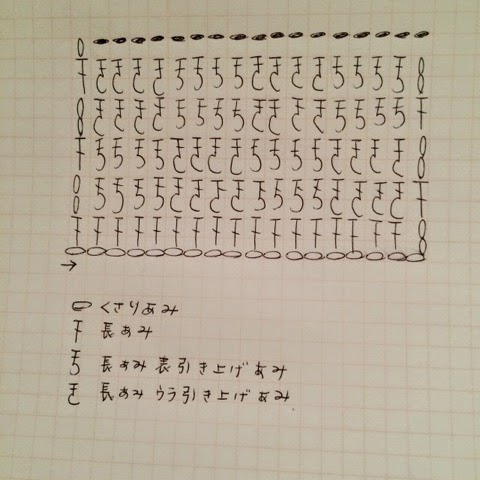 くさりあみ
長あみ
長あみ 表引き上げあみ
長あみ ウラ引き上げあみ